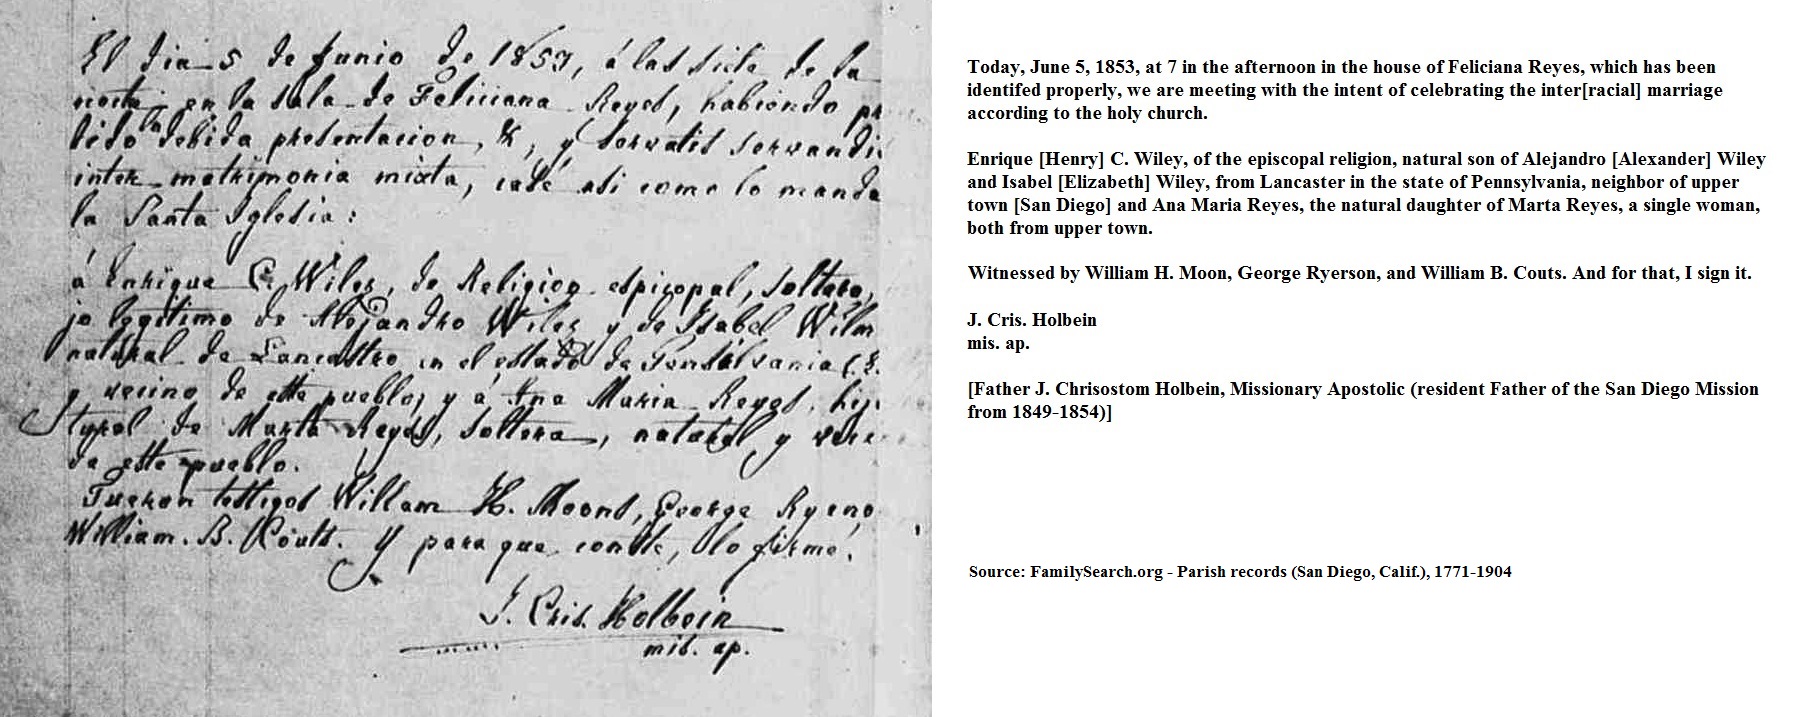 El dia 5 de Junio de 1853, á las siete de la
noche, en la sala de Feliciana Reyes, habiendo
la debida presentacion, &, y servatis servandis
inter matrimonia mixta, casé asi como lo manda
la Santa Iglesia:
á Enrique C. Wiley, de Religion episcopal, soltero,
jo legitimo de Alejandro Wiley y de Isabel
natural de Lancastro en el estado de Pensilvania
y vecino de este pueblo, y á Ana Maria Reyes,
de Marta Reyes, soltera, natural y
de este pueblo.
Fueron testigos Willam H. Moons, George
William. B. Couts. Y para que conste, lo firmé.
J. Cris. Holbein
mis. ap.
Today, June 5, 1853, at 7 in the afternoon in the house of Feliciana Reyes, which has been
identifed properly, we are meeting with the intent of celebrating the inter[racial] marriage
according to the holy church.
Enrique [Henry] C. Wiley, of the episcopal religion, natural son of Alejandro [Alexander] Wiley
and Isabel [Elizabeth] Wiley, from Lancaster in the state of Pennsylvania, neighbor of upper
town [San Diego] and Ana Maria Reyes, the natural daughter of Marta Reyes, a single woman,
both from upper town.
Witnessed by William H. Moon, George Ryerson, and William B. Couts. And for that, I sign it.
J. Cris. Holbein
mis. ap.
[Father J. Chrisostom Holbein, Missionary Apostolic (resident Father of the San Diego Mission
from 1849-1854)]
Source: FamilySearch.org - Parish records (San Diego, Calif.), 1771-1904